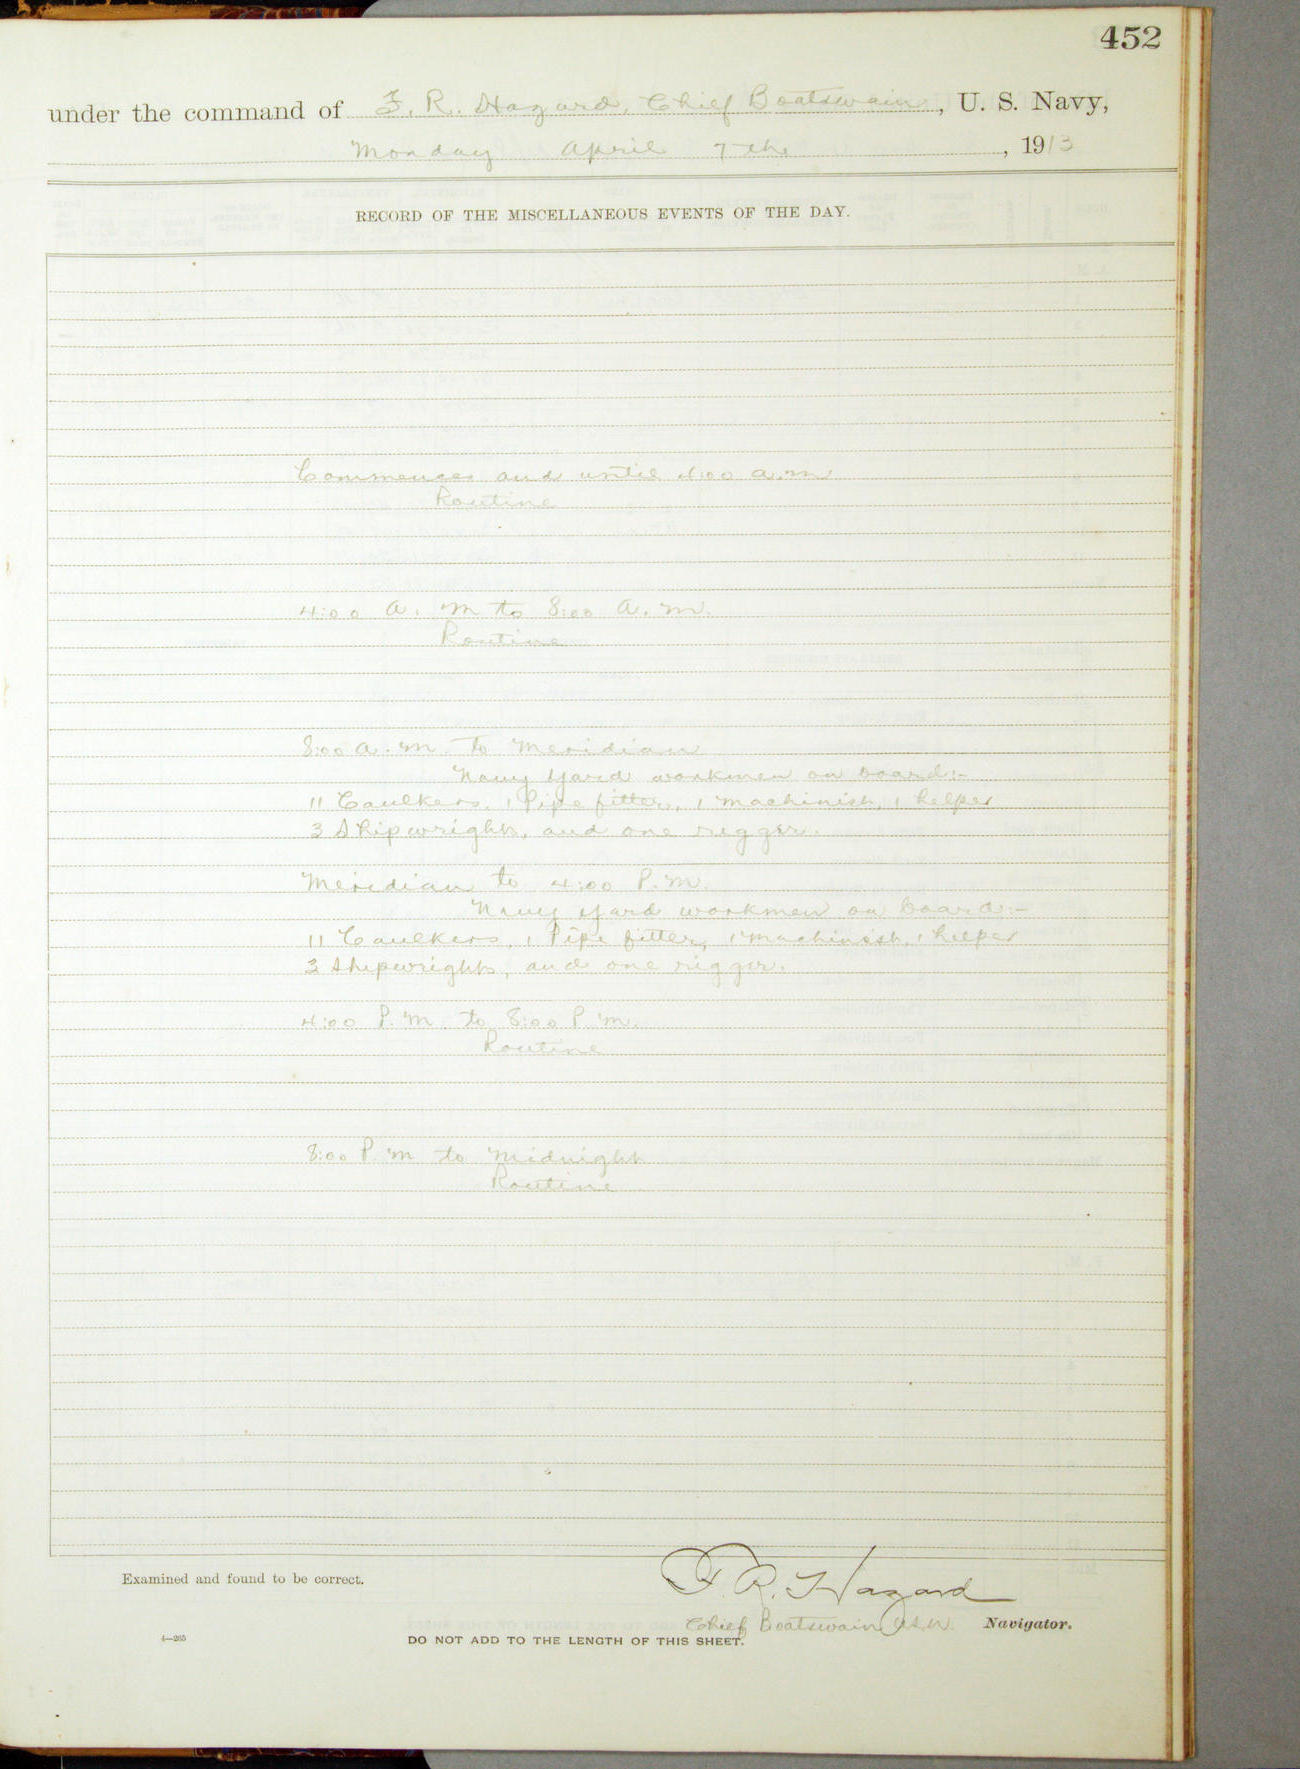 452
under the command of F. R. Hazard, Chief Boatswain, U. S. Navy,
Monday April 7th, 1913
RECORD OF THE MISCELLANEOUS EVENTS OF THE DAY.
Commences and until 4:00 a.m
Routine
4:00 A. M to 8:00 A. M.
Routine
8:00 A. M. to Meridian
Navy Yard workmen on board:-
11 Caulkers, 1 Pipe fitter, 1 machinist, 1 helper
3 Shipwrights, and one rigger.
Meridian to 4:00 P. M.
Navy Yard workmen on board:-
11 Caulkers, 1 Pipe fitter, 1 machinist, 1 helper
3 Shipwrights, and one rigger.
4:00 P. M. to 8:00 P. M.
Routine
8:00 P. M to Midnight
Routine
Examined and found to be correct.
F. R. Hazard
Chief Boatswain U.S.N. Navigator.
4—265
DO NOT ADD TO THE LENGTH OF THIS SHEET.